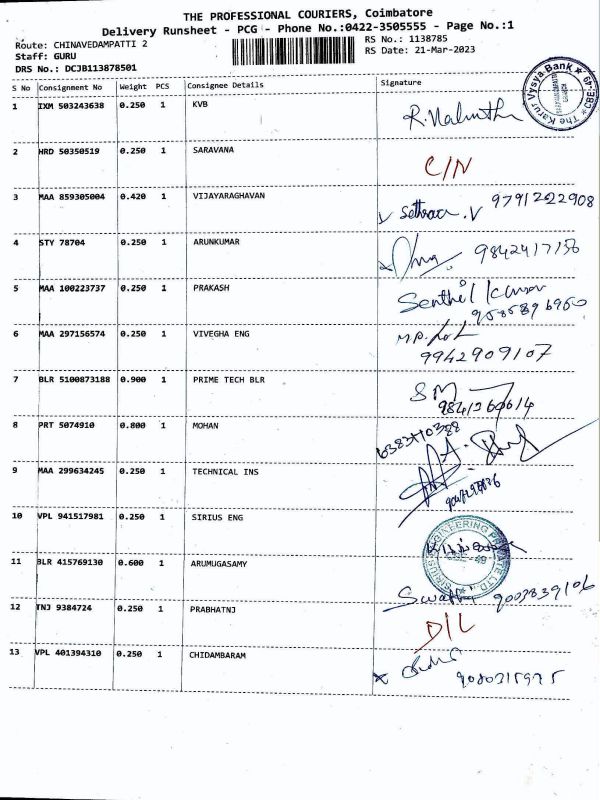 THE PROFESSIONAL COURIERS, Coimbatore
Delivery Runsheet - PCG - Phone No.:0422-3505555 - Page No.:1
Route: CHINAVEDAMPATTI 2
RS No.: 1138785
Staff: GURU
RS Date: 21-Mar-2023
DRS No.: DCJB113878501
S No Consignment No Weight PCS Consignee Details Signature
The Karur Vysya Bank
1 IXM 503243638 0.250 1 KVB
2 HRD 50350519 0.250 1 SARAVANA C/N
3 MAA 859305004 0.420 1 VIJAYARAGHAVAN 9791222908
4 STY 78704 0.250 1 ARUNKUMAR 9842417156
5 MAA 100223737 0.250 1 PRAKASH Senthil Kumar
6 MAA 297156574 0.250 1 VIVEGHA ENG
9942909107
7 BLR 5100873188 0.900 1 PRIME TECH BLR SM
8 PRT 5074910 0.800 1 MOHAN
9 MAA 299634245 0.250 1 TECHNICAL INS
10 VPL 941517981 0.250 1 SIRIUS ENG
SIRIUS ENGINEERING PRIVATE LTD
11 BLR 415769130 0.600 1 ARUMUGASAMY
9003839106
12 TNJ 9384724 0.250 1 PRABHATNJ D/L
13 VPL 401394310 0.250 1 CHIDAMBARAM